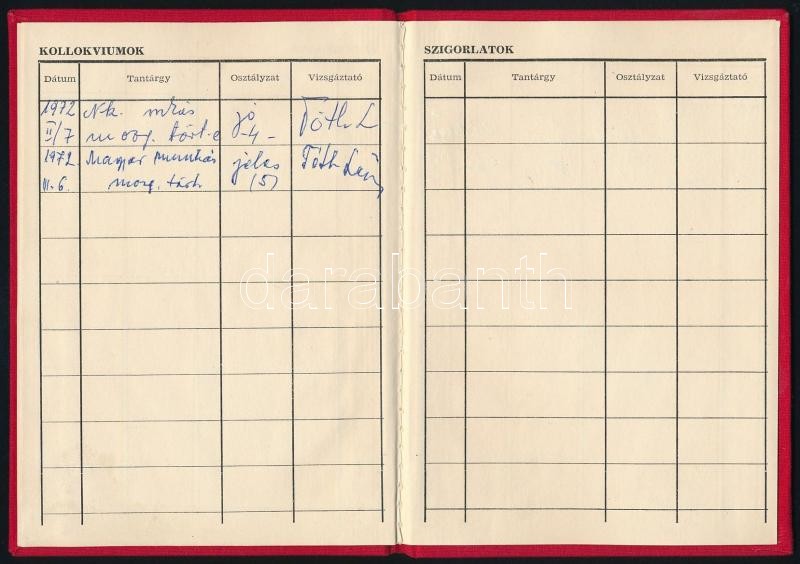 KOLLOKVIUMOK
Dátum Tantárgy Osztályzat Vizsgáztató
1972 Nk. mkás jó Tóth L
II/7 mozg. tört-e -4-
1972 Magyar munkás jeles Tóth
VI. 6. mozg. tört. (5)
SZIGORLATOK
Dátum Tantárgy Osztályzat Vizsgáztató
darabanth